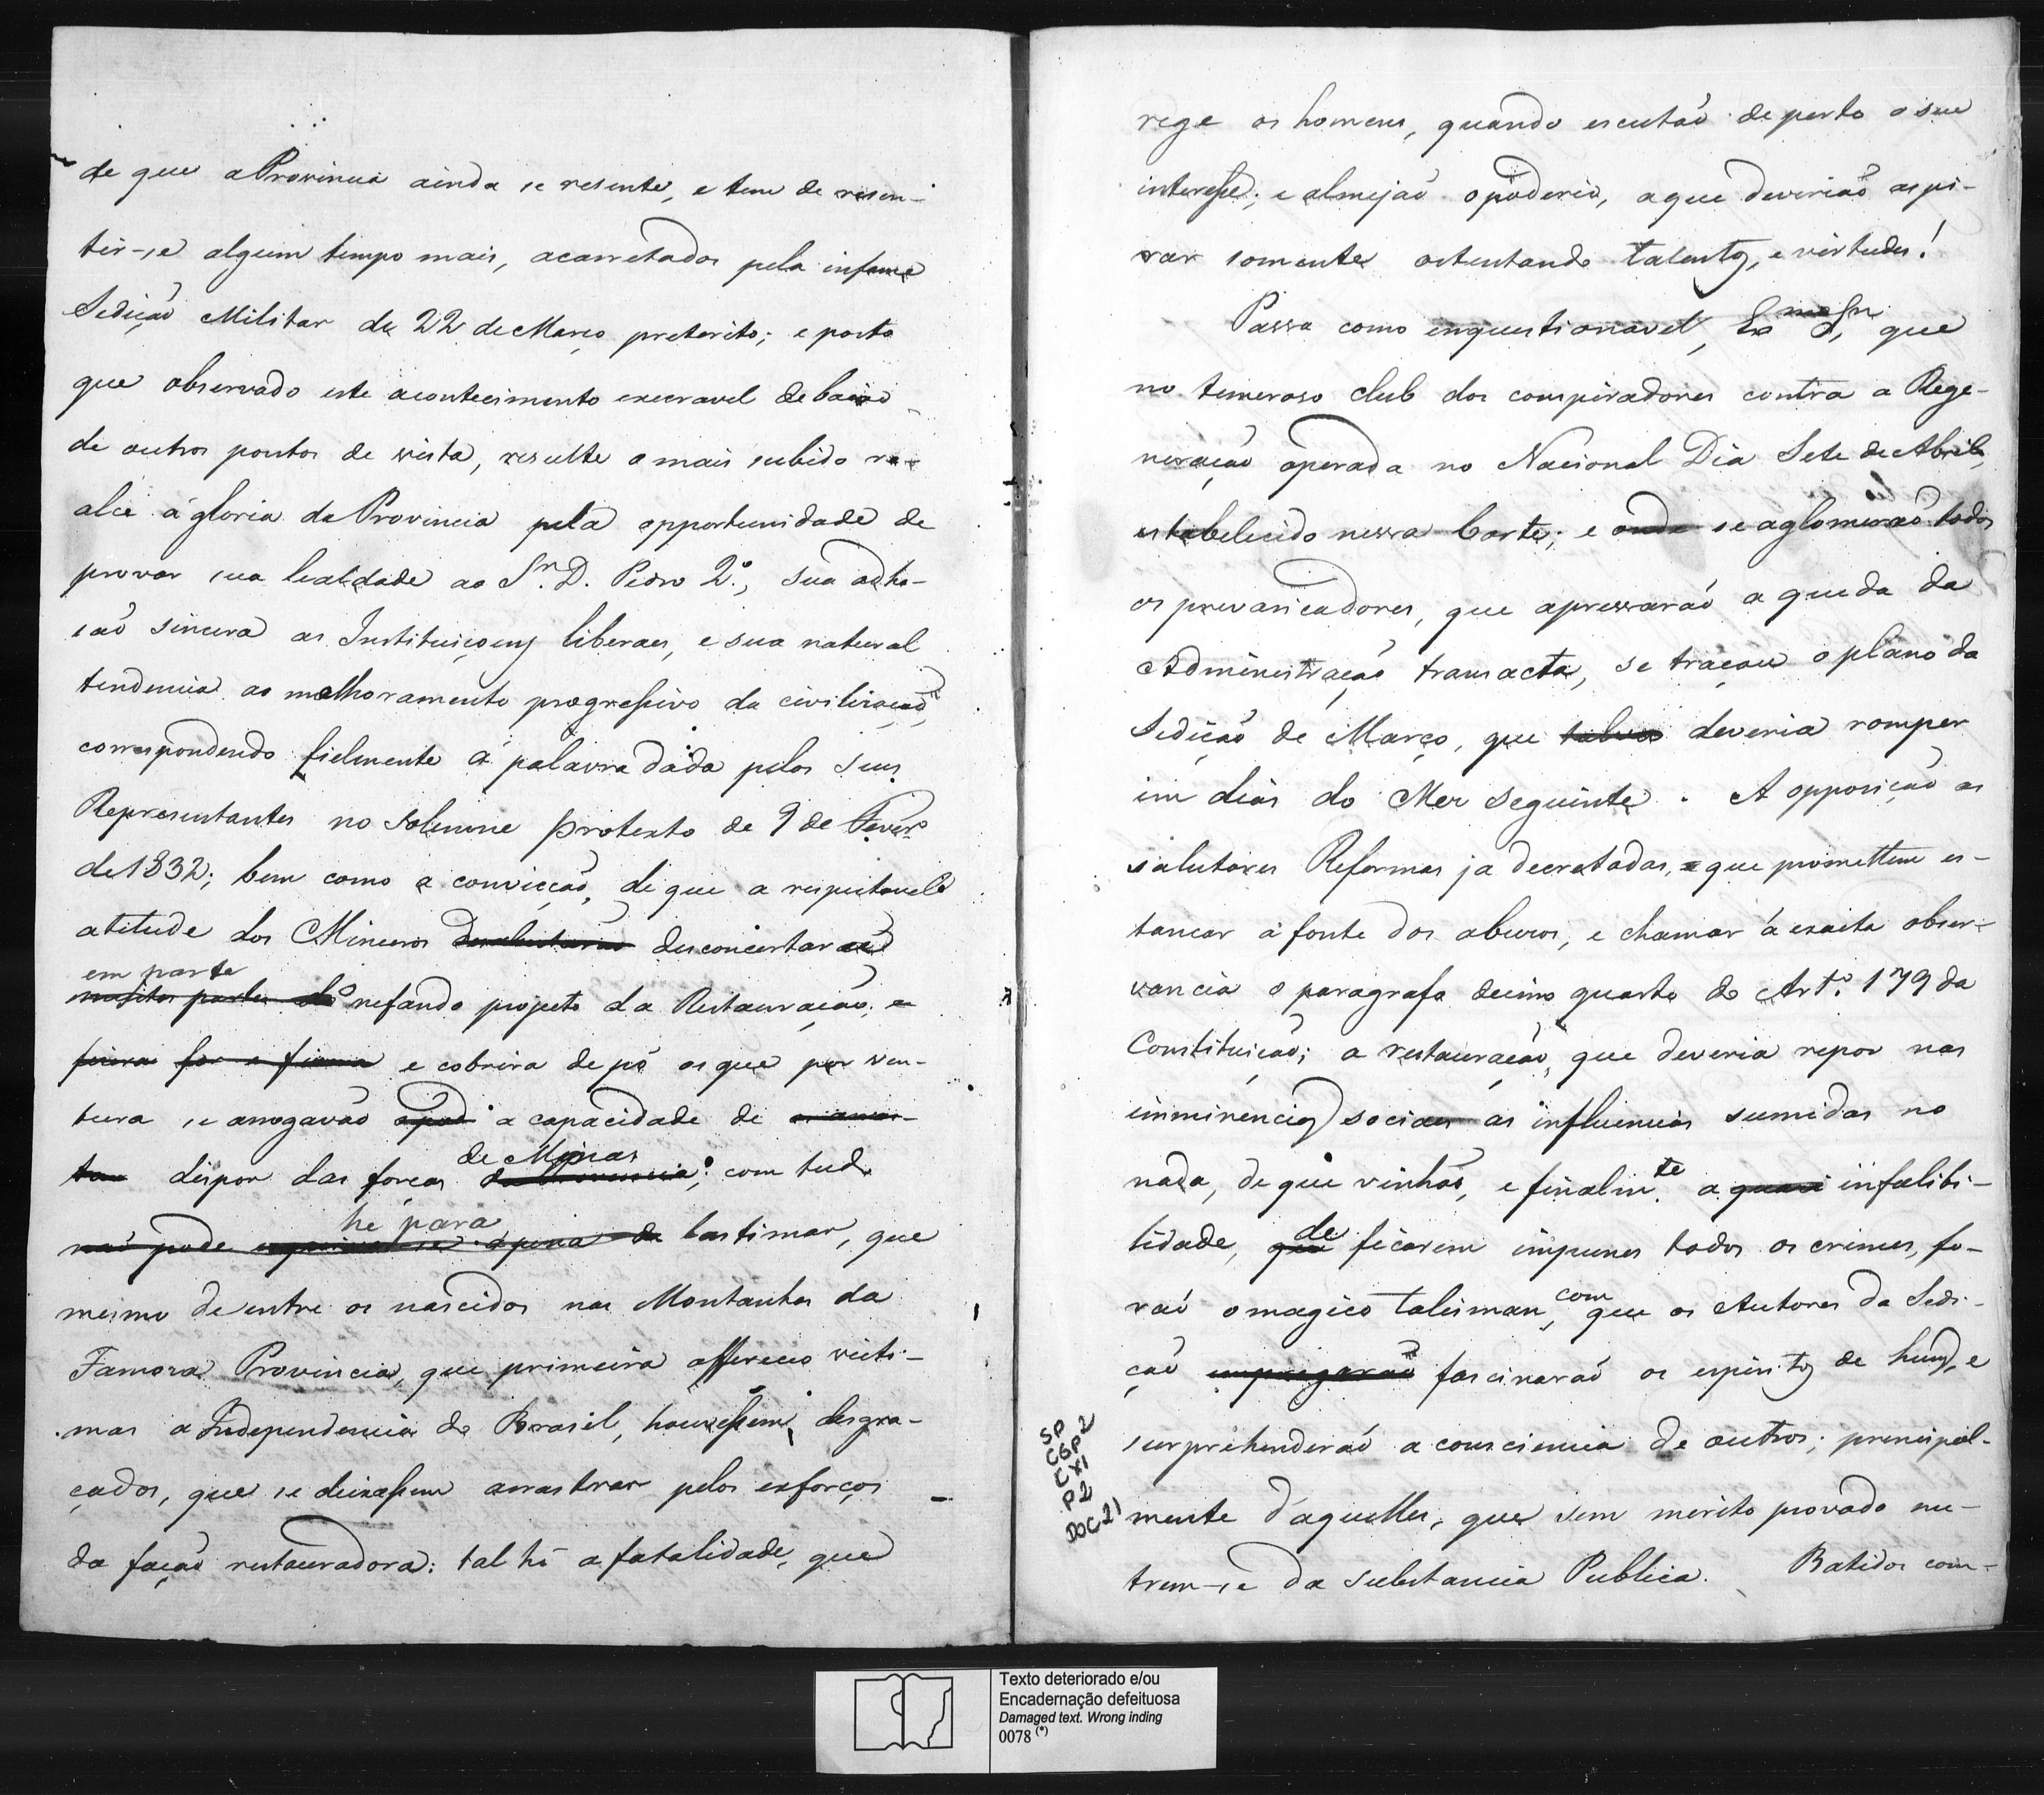 de que a Provincia ainda se resente, e tem de resen-
tir-se algum tempo mais, acarretados pela infame
Sedição Militar de 22 de Março preterito; e posto
que observado este acontecimento execravel debaixo
de outros pontos de vista, resulte o mais subido re-
alce á gloria da Provincia pela opportunidade de
provar sua lealdade ao Snr. D. Pedro 2º., sua adhe-
são sincera as Instituiçoens liberaes, e sua natural
tendencia ao melhoramento progressivo da civilisação,
correspondendo fielmente á palavra dada pelos seus
Representantes no solemne protesto de 9 de Fever.o
de 1832; bem como a convicção, de que a respeitavel
atitude dos Mineiros desconcertará
em parte
o nefando projecto da Restauração, e
e cobrira de pó os que por ven-
tura se arrogavão a capacidade de
de Minas
dispor das forças da Provincia; com tudo
he para
não pode a pena de lastimar, que
mesmo de entre os nascidos nas Montanhas da
Famosa Provincia, que primeira offereceo victi-
mas a Independencia do Brasil, houvessem desgra-
çados, que se deixassem arrastrar pelos exforços
da facão restauradora: tal hé a fatalidade, que
rege os homens, quando escutão de perto o seu
interesse; e almejão o poderio, a que deverião aspi-
rar somente ostentando talentos, e virtudes!
Passa como inquestionavel, Exmo Snr, que
no temeroso club dos conspiradores contra a Rege-
neração operada no Nacional Dia Sete de Abril,
estabelecido nessa Corte; e onde se aglomerão todos
os prevaricadores, que apressarão a queda da
Administração transacta, se traçou o plano da
Sedição de Março, que talvez deveria romper
em dias do Mez seguinte. A opposição as
salutares Reformas ja decretadas, e que promettem es-
tancar a fonte dos abusos, e chamar á exacta obser-
vancia o paragrafo decimo quarto do Art.o 179 da
Constituição; a restauração, que deveria repor nas
imminencias sociaes as influencias sumidas no
nada, de que vinhão, e finalm.te a quasi infalibi-
lidade, que de ficarem impunes todos os crimes, fo-
rão o magico talisman, com que os Autores da Sedi-
ção empregarão fascinarão os espiritos de huns, e
surprehenderão a consciencia de outros; principal-
mente d'aquelles, que sem merito provado nu-
trem-se da substancia Publica. Batidos com-
SP
CGP2
CX1
P2
DOC21
Texto deteriorado e/ou
Encadernação defeituosa
Damaged text. Wrong inding
0078 (*)